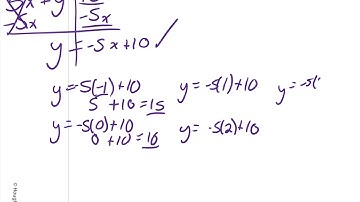 5x + y = 10
-5x -5x
y = -5x+10 ✓
y=-5(-1)+10 y=-5(1)+10 y=-5(
5 +10=15
y=-5(0)+10 y=-5(2)+10
0 +10=10